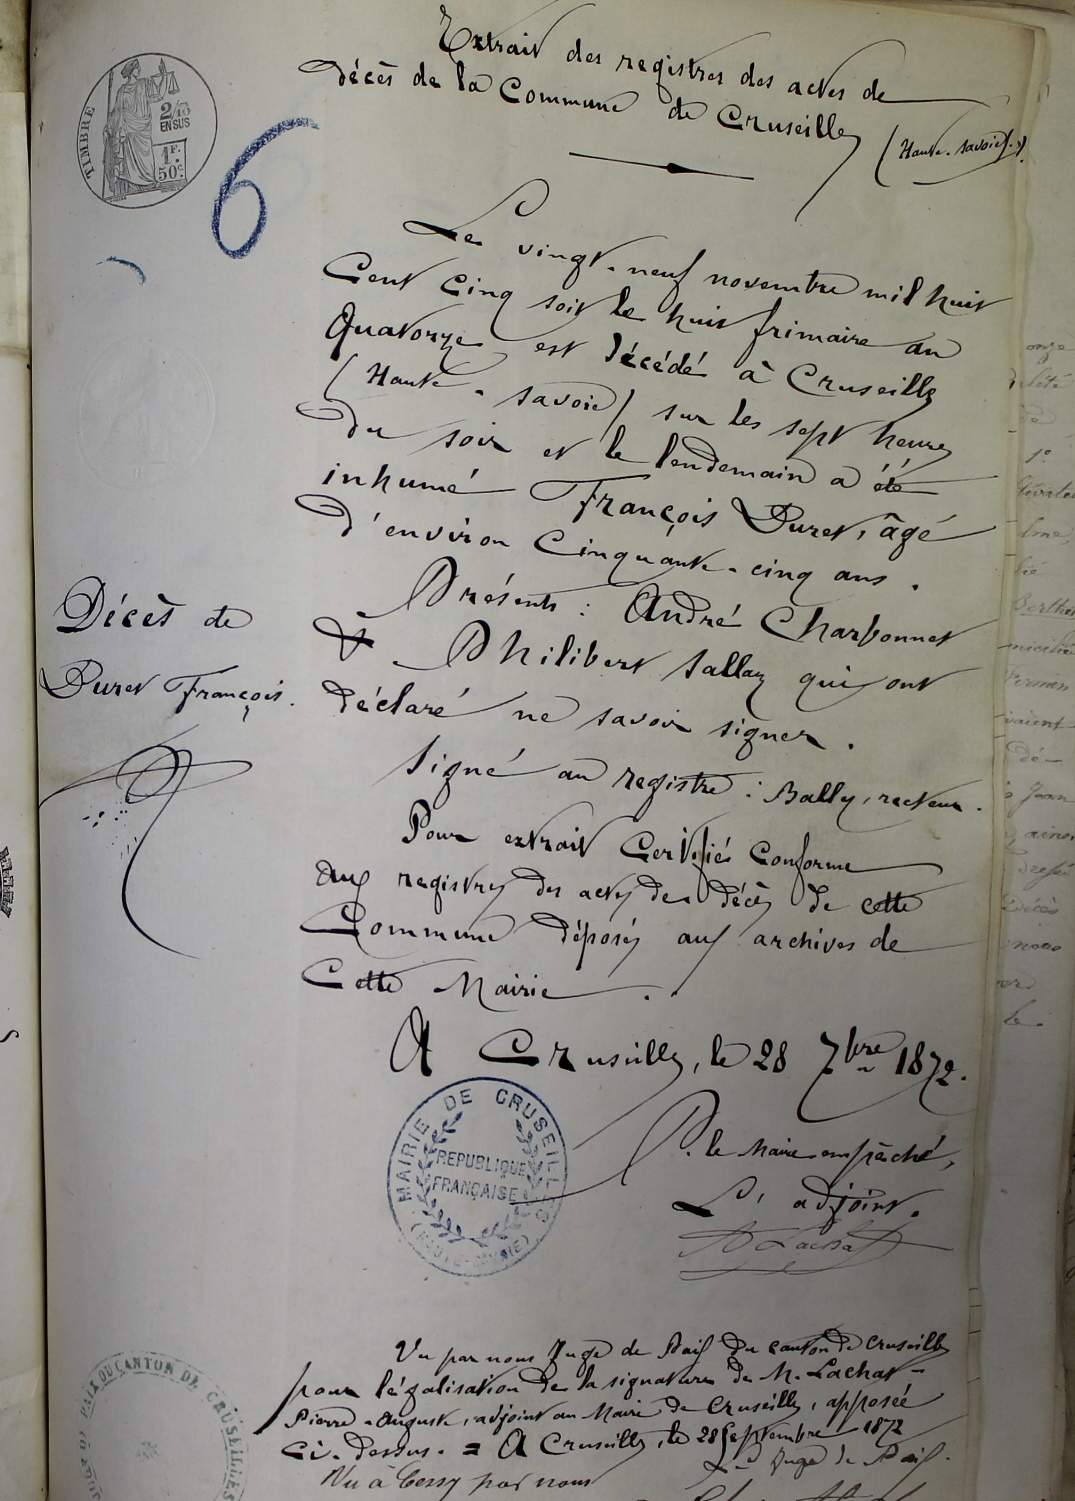 Extrait des registres des actes de
décès de la Commune de Cruseilles
(Haute-Savoie).
TIMBRE
2/10
EN SUS
1F.
50c.
6
Le vingt-neuf novembre mil huit
Cent Cinq soit le huit frimaire an
Quatorze est décédé à Cruseilles
(Haute-Savoie) sur les sept heures
du soir et le lendemain a été
inhumé François Duret, âgé
d'environ Cinquante-cinq ans.
Présents : André Charbonnet
& Philibert Sallaz qui ont
déclaré ne savoir signer.
Décès de
Duret François.
Signé au registre : Bally, recteur.
Pour extrait Certifié Conforme
aux registres des actes de décès de cette
Commune déposés aux archives de
Cette Mairie.
A Cruseilles, le 28 7bre 1872.
P. le Maire empêché,
L'adjoint.
Lachat
MAIRIE DE CRUSEILLES
REPUBLIQUE
FRANÇAISE
(HAUTE-SAVOIE)
Vu par nous Juge de Paix du canton de Cruseilles
pour légalisation de la signature de M. Lachat
Pierre-Auguste, adjoint au Maire de Cruseilles, apposée
ci-dessus. = A Cruseilles, le 28 Septembre 1872
Le Juge de Paix.
Vu à Cessy par nous
PAIX DU CANTON DE CRUSEILLES